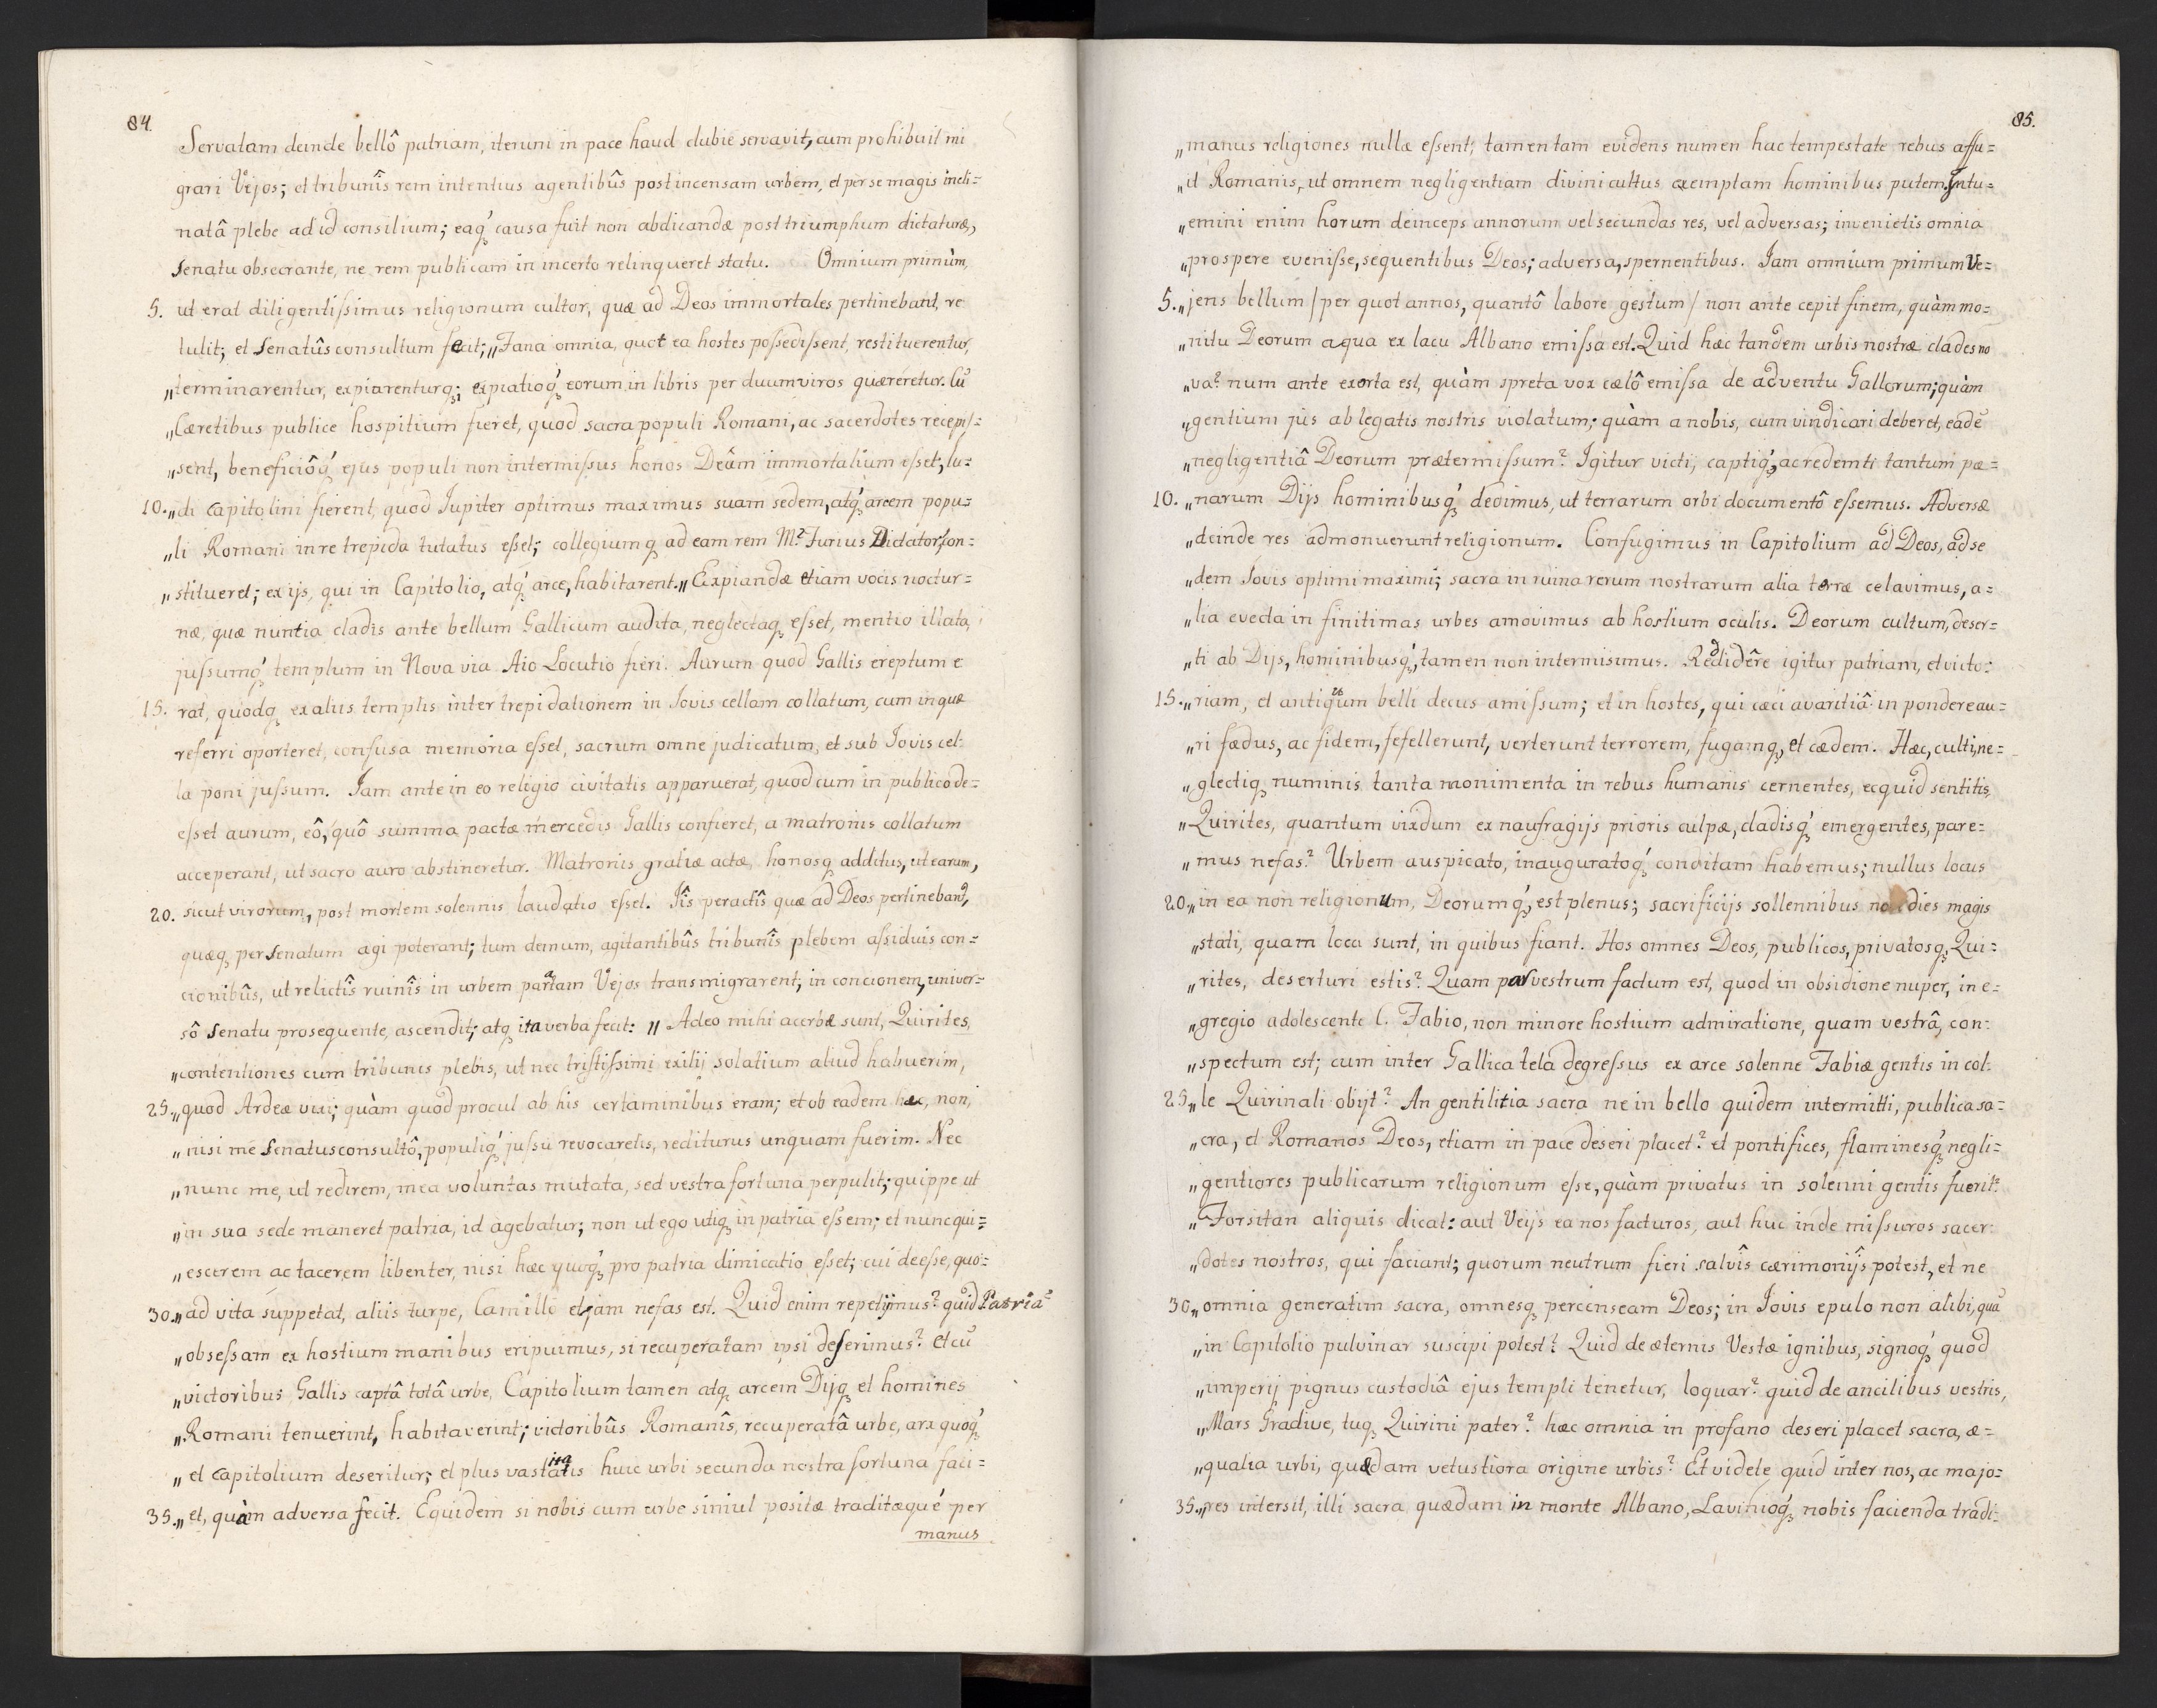 84.
Servatam deinde bellô patriam, iterum in pace haud dubie servavit, cum prohibuit mi
grari Vejos; et tribunîs rem intentius agentibûs post incensam urbem, et per se magis incli=
natâ plebe ad id consilium; eaq́ʒ causa fuit non abdicandæ post triumphum dictaturæ,
Senatu obsecrante, ne rem publicam in incerto relinqueret statu. Omnium primùm,
5. ut erat diligentiſsimus religionum cultor, quæ ad Deos immortales pertinebant, re
tulit; et Senatûsconsultum fecit; „Fana omnia, quot ea hostes poſsediſsent, restituerentur,
„terminarentur, expiarenturqʒ; expiatioq́ʒ eorum in libris per duumviros quæreretur. Cū
„Cæretibus publice hospitium fieret, quod sacra populi Romani, ac sacerdotes recepiſ=
„sent, beneficiôq́ʒ ejus populi non intermiſsus honos Deûm immortalium eſset; lu=
10. „di Capitolini fierent, quod Jupiter optimus maximus suam sedem, atq́ʒ arcem popu=
„li Romani in re trepida tutatus eſset; collegiumqʒ ad eam rem M? Furius Dictator, con=
„stitueret; ex ijs, qui in Capitolio, atq́ʒ arce, habitarent.„ Expiandæ etiam vocis noctur=
næ, quæ nuntia cladis ante bellum Gallicum audita, neglectaqʒ eſset, mentio illata,
juſsumq́ʒ templum in Nova via Aio Locutio fieri. Aurum quod Gallis ereptum e
15. rat, quodqʒ ex aliis templis inter trepidationem in Jovis cellam collatum, cum in quæ
referri oporteret, confusa memoria eſset, sacrum omne judicatum, et sub Jovis cel=
la poni juſsum. Jam ante in eo religio civitatis apparuerat, quod cum in publico de=
eſset aurum, eô, quô summa pactæ mercedis Gallis confieret, a matronis collatum
acceperant, ut sacro auro abstineretur. Matronis gratiæ actæ, honosqʒ additus, ut earum,
20. sicut virorum, post mortem solennis laudatio eſset. Iîs peractîs quæ ad Deos pertinebant,
quæqʒ per Senatum agi poterant; tum demum, agitantibûs tribunîs plebem aſsiduis con=
cionibûs, ut relictîs ruinîs in urbem paratam Vejos transmigrarent; in concionem, univer=
sô Senatu prosequente, ascendit; atqʒ ita verba fecit: „ Adeo mihi acerbæ sunt, Quirites,
„contentiones cum tribunis plebis, ut nec tristiſsimi exilij solatium aliud habuerim,
25. „quod Ardeæ vixi; quàm quod procul ab his certaminibus eram; et ob eadem hæc, non,
„nisi me Senatusconsultô, populiq́ʒ juſsu revocaretis, rediturus unquam fuerim. Nec
„nunc me, ut redirem, mea voluntas mutata, sed vestra fortuna perpulit; quippe ut
„in sua sede maneret patria, id agebatur; non ut ego utiqʒ in patria eſsem; et nunc qui=
„escerem ac tacerem libenter, nisi hæc quoq́ʒ pro patria dimicatio eſset; cui deeſse, quo=
30. „ad vita suppetat, aliis turpe, Camillo etiam nefas est. Quid enim repetijmus? quid Patria
„obseſsam ex hostium manibus eripuimus, si recuperatam ipsi deſerimus? et cū
„victoribus Gallis captâ totâ urbe, Capitolium tamen atqʒ arcem Dijqʒ et homines
„Romani tenuerint, habitaverint; victoribûs Romanîs, recuperatâ urbe, arx quoq́ʒ
„et Capitolium deseritur; et plus vastitatis huic urbi secunda nostra fortuna faci=
35. „et, quàm adversa fecit. Equidem si nobis cum urbe simul positæ traditæqué per
manus
85.
„manus religiones nullæ eſsent; tamen tam evidens numen hac tempestate rebus affu=
„it Romanis, ut omnem negligentiam divini cultus exemptam hominibus putem. Intu=
„emini enim horum deinceps annorum vel secundas res, vel adversas; invenietis omnia
„prospere eveniſse, sequentibus Deos; adversa, spernentibus. Jam omnium primum Ve=
5. „jens bellum / per quot annos, quantô labore gestum / non ante cepit finem, quàm mo=
„nitu Deorum aqua ex lacu Albano emiſsa est. Quid hæc tandem urbis nostræ clades no
„va? num ante exorta est, quàm spreta vox cælô emiſsa de adventu Gallorum; quàm
„gentium jus ab legatis nostris violatum; quàm a nobis, cum vindicari deberet, eadē
„negligentiâ Deorum prætermiſsum? Igitur victi, captiq́ʒ, ac redemti tantum pæ=
10. „narum Dijs hominibusq́ʒ dedimus, ut terrarum orbi documentô eſsemus. Adversæ
„deinde res admonuerunt religionum. Confugimus in Capitolium ad Deos, ad se
„dem Jovis optimi maximi; sacra in ruina rerum nostrarum alia terræ celavimus, a=
„lia evecta in finitimas urbes amovimus ab hostium oculis. Deorum cultum, deser=
„ti ab Dijs, hominibusq́ʒ, tamen non intermisimus. Reddidêre igitur patriam, et victo=
15. „riam, et antiquum belli decus amiſsum; et in hostes, qui cæci avaritiâ in pondere au=
„ri fædus, ac fidem, fefellerunt, verterunt terrorem, fugamqʒ, et cædem. Hæc, culti, ne=
„glectiqʒ numinis tanta monimenta in rebus humanis cernentes, ecquid sentitis,
„Quirites, quantum vixdum ex naufragijs prioris culpæ, cladisq́ʒ emergentes, pare=
„mus nefas? Urbem auspicato, inauguratoq́ʒ conditam habemus; nullus locus
20. „in ea non religionum, Deorumq́ʒ, est plenus; sacrificijs sollennibus no dies magis
„stati, quam loca sunt, in quibus fiant. Hos omnes Deos, publicos, privatosqʒ, Qui=
„rites, deserturi estis? Quam par vestrum factum est, quod in obsidione nuper, in e=
„gregio adolescente C. Fabio, non minore hostium admiratione, quam vestrâ, con=
„spectum est; cum inter Gallica tela degreſsus ex arce solenne Fabiæ gentis in col=
25. „le Quirinali obijt? An gentilitia sacra ne in bello quidem intermitti, publica sa=
„cra, et Romanos Deos, etiam in pace deseri placet? et pontifices, flaminesq́ʒ negli=
„gentiores publicarum religionum eſse, quàm privatus in solenni gentis fuerit?
„Forsitan aliquis dicat: aut Veijs ea nos facturos, aut huc inde miſsuros sacer=
„dotes nostros, qui faciant; quorum neutrum fieri salvîs cærimonijs potest, et ne
30. „omnia generatim sacra, omnesqʒ percenseam Deos; in Jovis epulo non alibi, quā
„in Capitolio pulvinar suscipi potest? Quid de æternis Vestæ ignibus, signoq́ʒ quod
„imperij pignus custodiâ ejus templi tenetur, loquar? quid de ancilibus vestris,
„Mars Gradive, tuqʒ Quirini pater? hæc omnia in profano deseri placet sacra, æ=
„qualia urbi, quædam vetustiora origine urbis? Et videte quid inter nos, ac majo=
35. „res intersit, illi sacra quædam in monte Albano, Lavinioq́ʒ nobis facienda tradi=